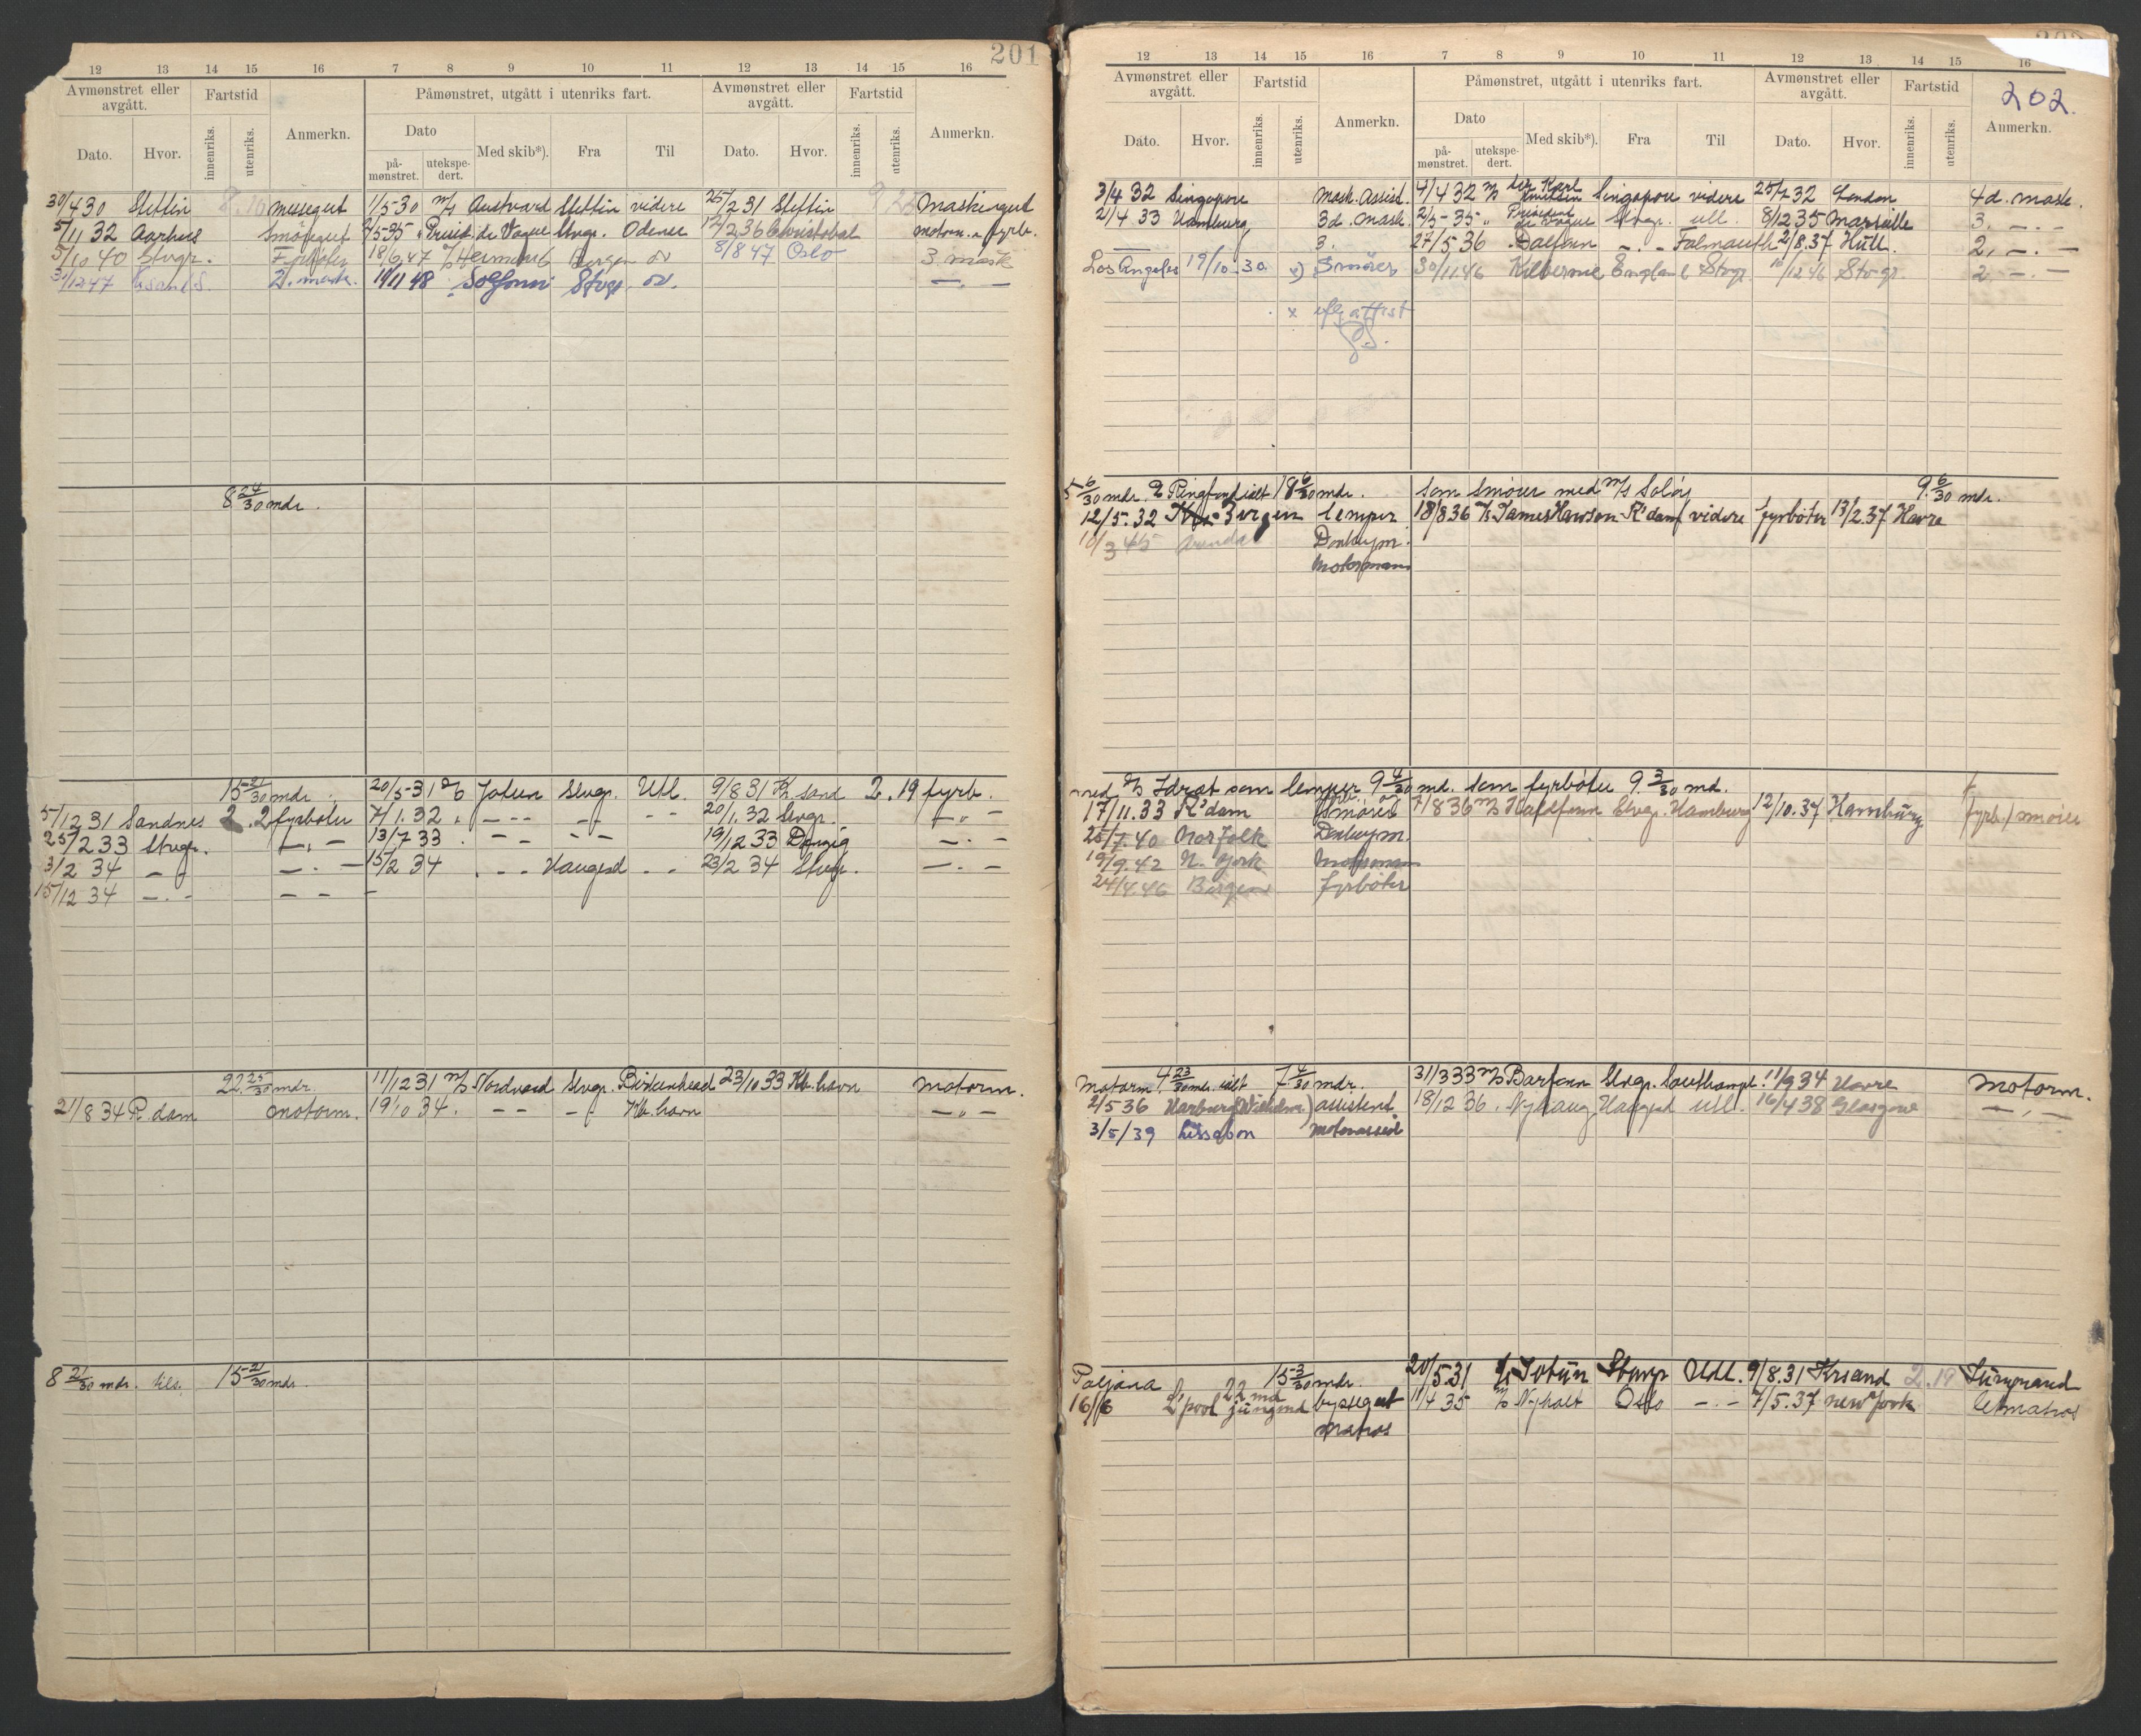 201
12 13 14 15 16 7 8 9 10 11 12 13 14 15 16
Avmønstret eller avgått. Fartstid Anmerkn. Påmønstret, utgått i utenriks fart. Avmønstret eller avgått. Fartstid Anmerkn.
Dato. Hvor. innenriks. utenriks. Dato Med skib*). Fra Til Dato. Hvor. innenriks. utenriks.
på-mønstret. utekspe-dert.
30/4 30 Stettin messegut 1/5 30 m/s Austvard Stettin videre 25/2 31 Stettin Maskingut
5/11 32 Aarhus Smöregut 2/5 35 " Presid. de Vogue Stvgr. Odense 12/2 36 Christobal motorm. fyrb.
5/10 40 Stvgr. 18/6 47 Hermund Bergen ov 8/8 47 Oslo 3 mask
3/12 47 2. mask. 19/11 48 Solfonn Stvgr ov. — . —
8 24/30 mdr.
15 21/30 mdr. 20/5 31 Jotun Stvgr. Utl. 9/8 31 Kr.sand 2. 19 fyrb.
5/12 31 Sandnes 2. 2 fyrböter 7/1. 32 . — — — — 20/1. 32 Stvgr. — " —
25/2 33 Stvgr. — . — 13/7 33 . — — — 19/12 33 Danzig — . —
3/2 34 — — — . — 15/2 34 . — — Haugesd — — 23/2 34 Stvgr. — . —
15/12 34 — . — — —
22 25/30 mdr. 11/12 31 m/s Nordvard Stvgr. Birkenhead 23/10 33 Kb.havn motorm.
21/8 34 R.dam motorm. 19/10 34. — — — Kb.havn — " —
8 21/30 mdr. tils. 15 21/30 mdr.
202.
12 13 14 15 16 7 8 9 10 11 12 13 14 15 16
Avmønstret eller avgått. Fartstid Anmerkn. Påmønstret, utgått i utenriks fart. Avmønstret eller avgått. Fartstid Anmerkn.
Dato. Hvor. innenriks. utenriks. Dato Med skib*). Fra Til Dato. Hvor. innenriks. utenriks.
på-mønstret. utekspe-dert.
3/4 32 Singapore Mask. Assist. 4/4 32 m/s Sir Karl Knudsen Singapore videre 25/7 32 London 4d. mask.
21/4 33 Hamburg 3d. mask. 2/5-35 " President de Vogue Stvgr. utl. 8/12 35 Marseille 3. — . —
3. 27/5 36 Dalfonn — . — Falmouth 2/8. 37 Hull. 2. — . —
Los Angeles 19/10-30 x) Smörer 30/11 46 Kilbernie England Stvgr. 10/12 46 Stvgr 2. — . —
x iflg attest
5 6/30 mdr. Ringfond ialt 18 6/30 mdr. som smörer med m/s Solör 9 6/30 mdr.
12/5. 32 Bergen lemper 18/8 36 James Hawson R'dam videre fyrböter 13/2. 37 Havre
10/3 45 Arendal Donkeym.
Motormann
med Idræt som lemper 9 4/30 md. som fyrböter 9 3/30 md.
17/11. 33 R'dam smörer 7/8 36 m/s Hafsfonn Stvgr. Hamburg 12/10. 37 Hamburg fyrb./smörer
25/7. 40 Norfolk Donkeym.
19/9. 42 N. York Motormann
24/4. 46 Bergen fyrböter
Motorm. 4 23/30 mdr. ialt 7 4/30 mdr. 31/3 33 m/s Barfonn Stvgr. Southampt. 11/9 34 Havre motorm.
2/5 36 Harburg (Wilhelm.) assistent 18/12 36. Nyhaug Haugesd utl. 16/4 38 Glasgow — . —
3/5/39 Lissabon motorassist
Poljana 15 3/30 mdr. 20/5 31 Jotun Stvgr Utl. 9/8. 31 Krsand 2. 19 Lüngmand
16/6 L'pool 22 md jungmd byssegut 11/4 35 m/s Nyholt Oslo — . — 7/5. 37 New York Matros
Matros